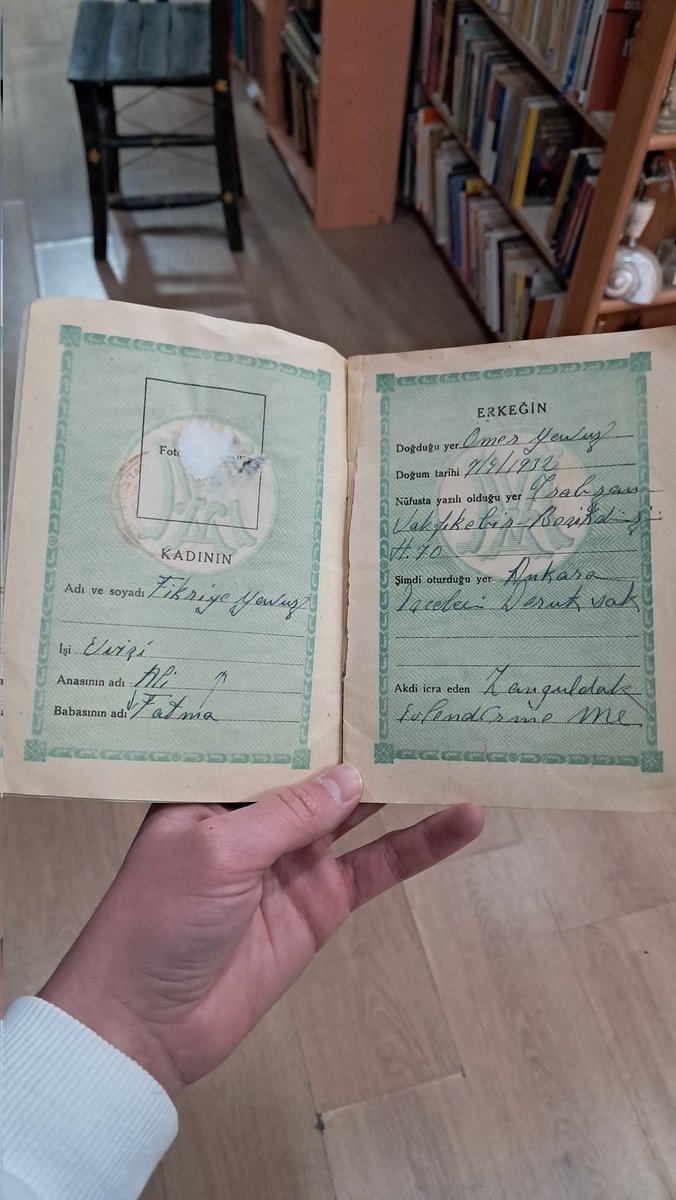 Foto
KADININ
Adı ve soyadı Fikriye Yavuz
İşi Evişi
Anasının adı Ali
Babasının adı Fatma
ERKEĞİN
Doğduğu yer Ömer Yavuz
Doğum tarihi 7/9/1932
Nüfusta yazılı olduğu yer Trabzon
Vakfıkebir
H.70
Şimdi oturduğu yer Ankara
sok
Akdi icra eden Zonguldak
Evlendirme Me